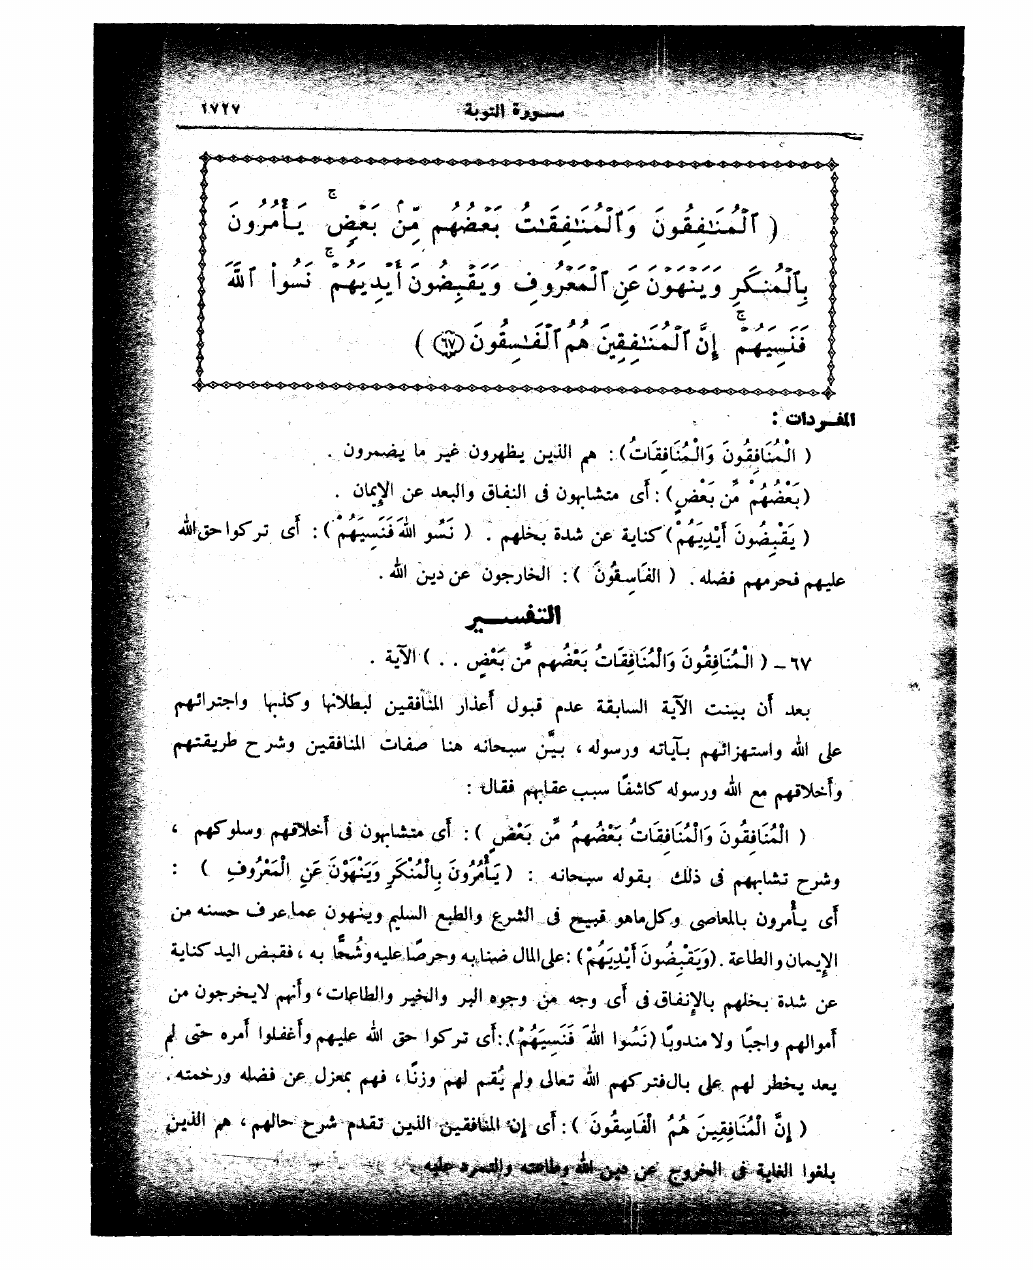 سورة التوبة ١٧٢٧
( ٱلْمُنَٰفِقُونَ وَٱلْمُنَٰفِقَٰتُ بَعْضُهُم مِّنۢ بَعْضٍ ۚ يَأْمُرُونَ
بِٱلْمُنكَرِ وَيَنْهَوْنَ عَنِ ٱلْمَعْرُوفِ وَيَقْبِضُونَ أَيْدِيَهُمْ ۚ نَسُوا۟ ٱللَّهَ
فَنَسِيَهُمْ ۚ إِنَّ ٱلْمُنَٰفِقِينَ هُمُ ٱلْفَٰسِقُونَ ٦٧ )
المفردات :
( الْمُنَافِقُونَ وَالْمُنَافِقَاتُ ) : هم الذين يظهرون غير ما يضمرون .
(بَعْضُهُمْ مِّن بَعْضٍ) : أى متشابهون فى النفاق والبعد عن الإيمان .
( يَقْبِضُونَ أَيْدِيَهُمْ) كناية عن شدة بخلهم . ( نَسُو اللهَ فَنَسِيَهُمْ ) : أى تركوا حق الله
عليهم فحرمهم فضله . ( الفَاسِقُونَ ) : الخارجون عن دين الله .
التفسير
٦٧ – ( الْمُنَافِقُونَ وَالْمُنَافِقَاتُ بَعْضُهم مِّن بَعْضٍ . . ) الآية .
بعد أن بينت الآية السابقة عدم قبول أعذار المنافقين لبطلانها وكذبها واجترائهم
على الله واستهزائهم بآياته ورسوله ، بيَّن سبحانه هنا صفات المنافقين وشرح طريقتهم
وأخلاقهم مع الله ورسوله كاشفًا سبب عقابهم فقال :
( الْمُنَافِقُونَ وَالْمُنَافِقَاتُ بَعْضُهمُ مِّن بَعْضٍ ) : أى متشابهون فى أخلاقهم وسلوكهم ،
وشرح تشابههم فى ذلك بقوله سبحانه : ( يَأْمُرُونَ بِالْمُنْكَرِ وَيَنْهَوْنَ عَنِ الْمَعْرُوفِ ) :
أى يأمرون بالمعاصى وكل ماهو قبيح فى الشرع والطبع السليم وينهون عما عرف حسنه من
الإيمان والطاعة . (وَيَقْبِضُونَ أَيْدِيَهُمْ) : على المال ضنا به وحرصًا عليه وشُحًّا به ، فقبض اليد كناية
عن شدة بخلهم بالإنفاق فى أى وجه من وجوه البر والخير والطاعات ، وأنهم لايخرجون من
أموالهم واجبًا ولا مندوبًا (نَسُوا اللهَ فَنَسِيَهُمْ) : أى تركوا حق الله عليهم وأغفلوا أمره حتى لم
يعد يخطر لهم على بال فتركهم الله تعالى ولم يُقم لهم وزنًا ، فهم بمعزل عن فضله ورحمته .
( إِنَّ الْمُنَافِقِينَ هُمُ الْفَاسِقُونَ ) : أى إن المنافقين الذين تقدم شرح حالهم ، هم الذين
بلغوا الغاية فى الخروج عن دين الله وطاعته والتمرد عليه .